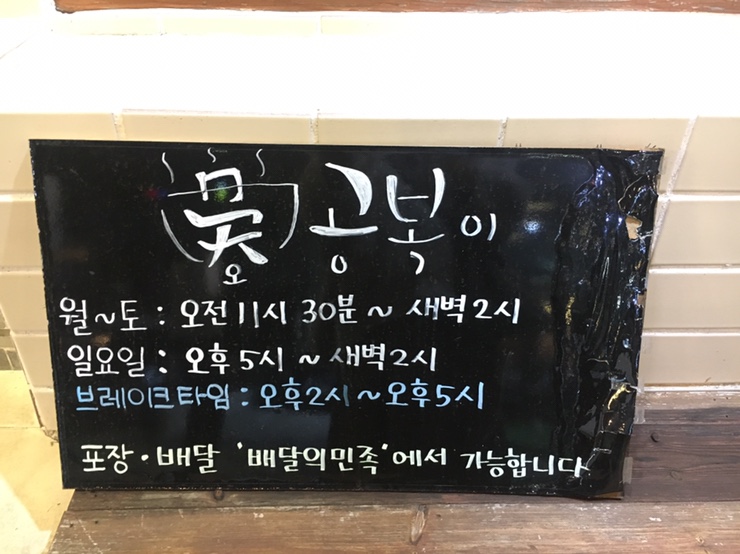 오 공복이
월~토 : 오전 11시 30분 ~ 새벽 2시
일요일 : 오후 5시 ~ 새벽 2시
브레이크타임 : 오후2시 ~ 오후5시
포장·배달 '배달의민족'에서 가능합니다